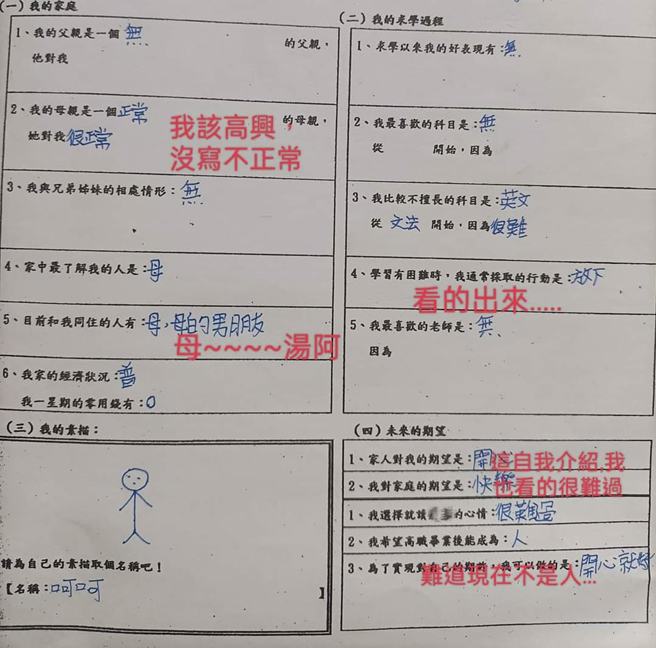 (一) 我的家庭
1、我的父親是一個 無 的父親，
他對我
2、我的母親是一個正常 的母親，
她對我很正常
我該高興，
沒寫不正常
3、我與兄弟姊妹的相處情形：無
4、家中最了解我的人是：母
5、目前和我同住的人有：母，母的男朋友
母~~~~湯阿
6、我家的經濟狀況：普
我一星期的零用錢有：0
(二) 我的求學過程
1、求學以來我的好表現有：無
2、我最喜歡的科目是：無
從 開始，因為
3、我比較不擅長的科目是：英文
從 文法 開始，因為很難
4、學習有困難時，我通常採取的行動是：放下
看的出來.....
5、我最喜歡的老師是：無
因為
(三) 我的素描：
請為自己的素描取個名稱吧！
【名稱：呵呵 】
(四) 未來的期望
1、家人對我的期望是：開
2、我對家庭的期望是：快樂
這自我介紹,我
也看的很難過
1、我選擇就讀 的心情：很難過
2、我希望高職畢業後能成為：人
3、為了實現對自己的期許，我可以做的是：開心就好
難道現在不是人...